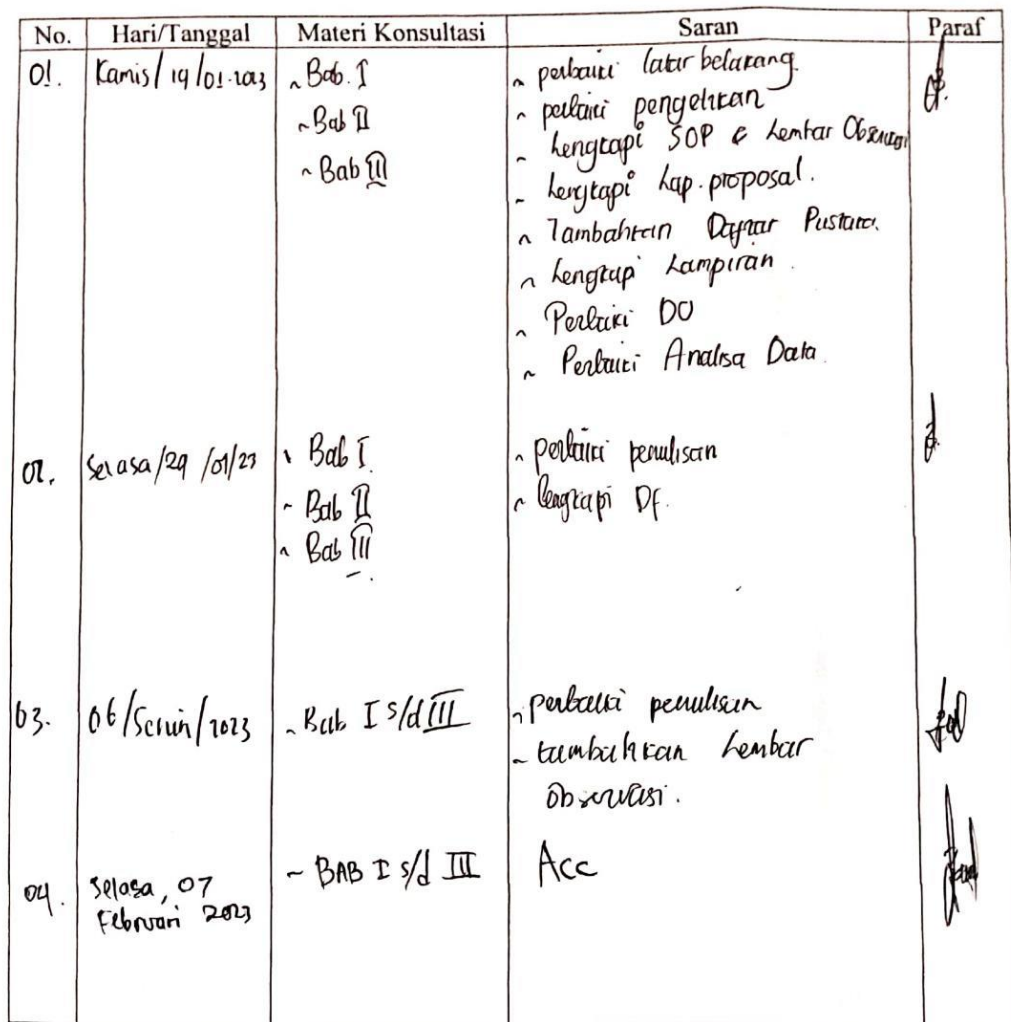 No. Hari/Tanggal Materi Konsultasi Saran Paraf
01. Kamis/ 19/01-2023 ~ Bab. I ~ perbaiki latar belakang.
~ Bab II ~ perbaiki pengetikan
~ Bab III ~ Lengkapi SOP & Lembar Observasi
~ Lengkapi Lap. proposal.
~ Tambahkan Daftar Pustaka.
~ Lengkapi Lampiran.
~ Perbaiki DO
~ Perbaiki Analisa Data
02. Selasa/29 /01/23 ~ Bab I ~ perbaiki penulisan
~ Bab II ~ lengkapi Df.
~ Bab III
03. 06/Senin/2023 ~ Bab I s/d III ~ perbaiki penulisan
~ tambahkan Lembar
Observasi.
04. Selasa, 07 ~ BAB I s/d III Acc
Februari 2023